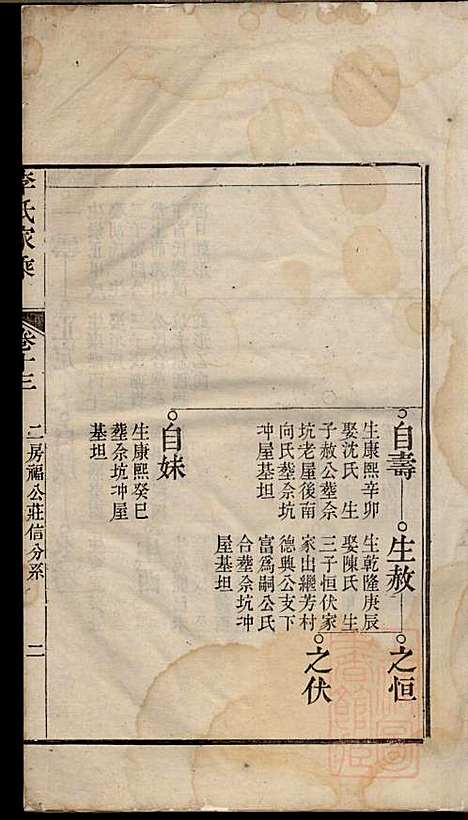 自壽
生康熙辛卯
娶沈氏 生
子赦公塟佘
坑老屋後南
向氏塟佘坑
冲屋基坦
生赦
生乾隆庚辰
娶陳氏 生
三子恒伏家
家出繼芳村
德興公支下
富為嗣公氏
合塟佘坑冲
屋基坦
之恒
之伏
自妹
生康熙癸巳
塟佘坑冲屋
基坦
李氏家乘
卷十三
二房福公莊信分系
二